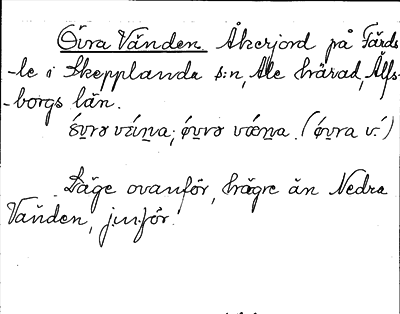 Övra Vänden Åkerjord på Färds-
-le i Skepplanda s:n, Ale härad, Älfs-
-borgs län.
(óv̱ra v.)
Läge ovanför, högre än Nedra
Vänden, jmför.